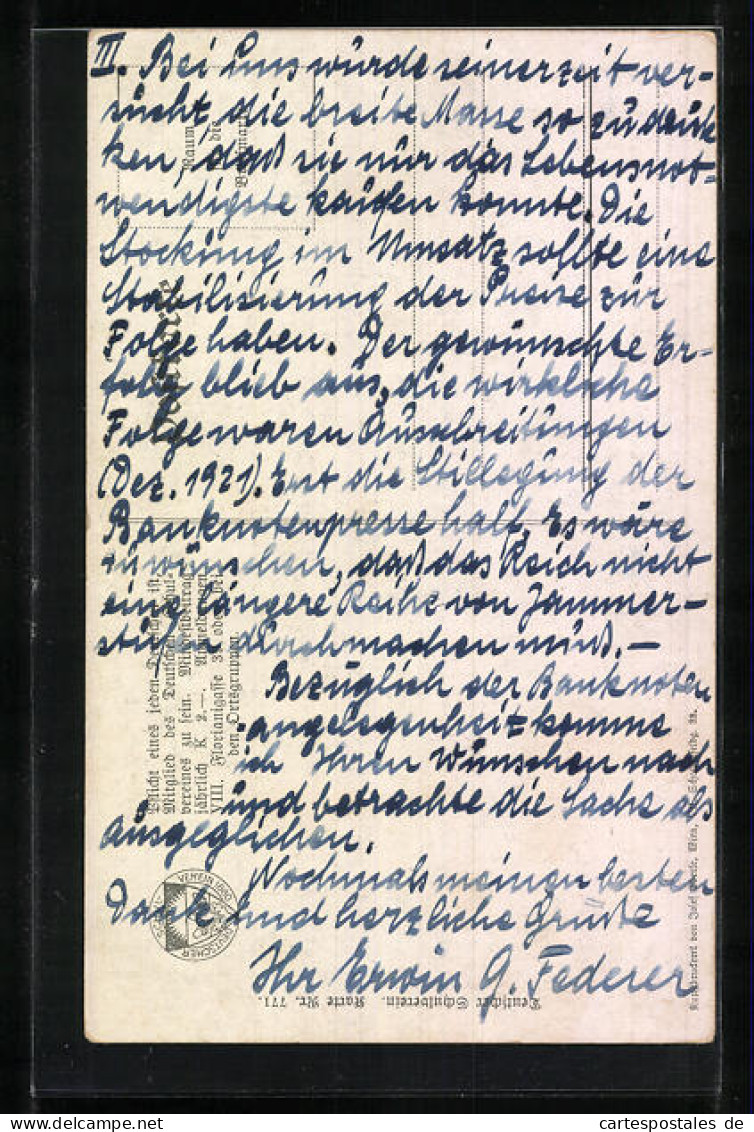 III. Bei uns wurde seinerzeit ver-
sucht, die breite Masse so zu drük
ken, daß sie nur das Lebensnot-
wendigste kaufen konnte. Die
Stockung im Umsatz sollte eine
Stabilisierung der Preise zur
Folge haben. Der gewünschte Er-
folg blieb aus, die wirkliche
Folge waren Ausschreitungen
(Dez. 1921). Erst die Stillegung der
Banknotenpresse half. Es wäre
zu wünschen, daß das Reich nicht
eine längere Reihe von Jammer-
durchmachen muß. –
Bezüglich der Banknoten
angelegenheit komme
ich Ihren Wünschen nach
und betrachte die Sache als
ausgeglichen.
Nochmals meinen besten
Dank und herzliche Grüße
Ihr Erwin G. Federer
Raum
für die
Postkarte
Pflicht eines jeden Deutschen ist,
Mitglied des Deutschen Schul-
vereines zu sein. Mitgliedsbeitrag
jährlich K 2.—. Anmeldungen
VIII. Florianigasse 39 oder bei
den Ortsgruppen
VEREIN 1880
DEUTSCHER
Deutscher Schulverein. Karte Nr. 771.
von Josef Eberle, Wien,
www.delcampe.net
cartespostales de